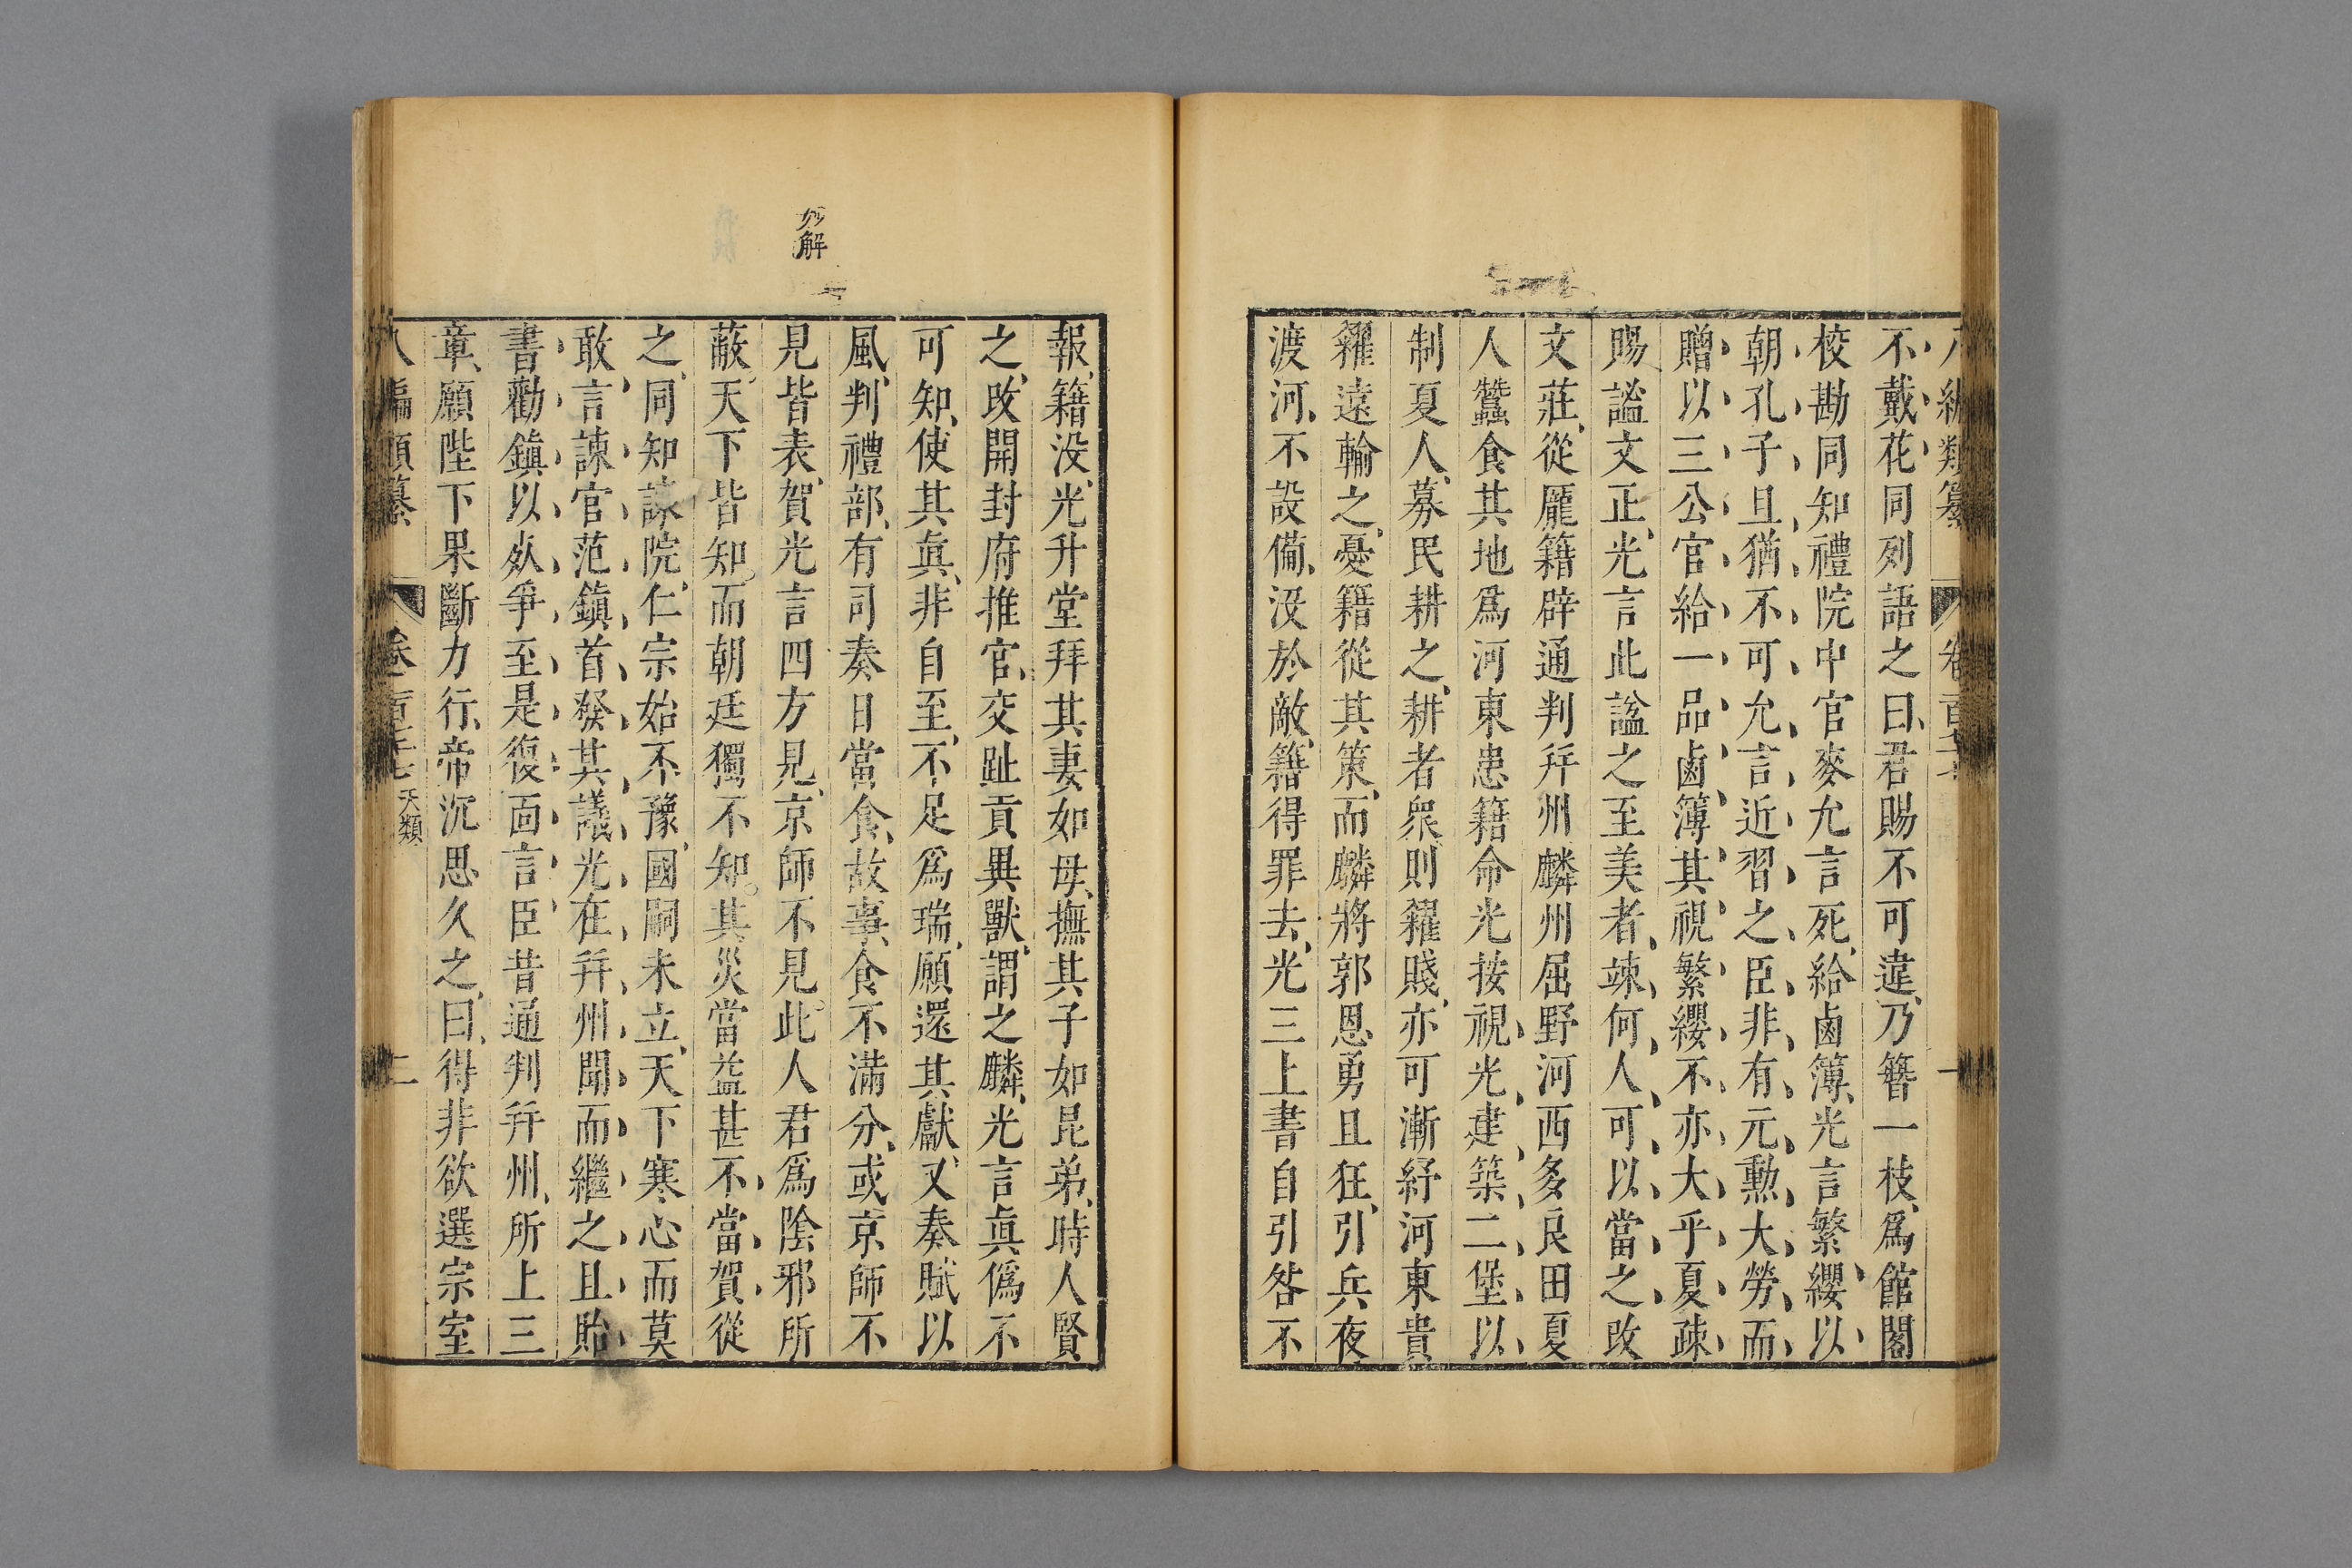 不戴花同列語之曰君賜不可違乃簪一枝爲館閣
校勘同知禮院中官麥允言死給鹵簿光言繁纓以
朝孔子且猶不可允言近習之臣非有元勲大勞而
贈以三公官給一品鹵簿其視繁纓不亦大乎夏竦
賜謚文正光言此謚之至美者竦何人可以當之改
文莊從龐籍辟通判幷州麟州屈野河西多良田夏
人蠶食其地爲河東患籍命光按視光建築二堡以
制夏人募民耕之耕者衆則糴賤亦可漸紓河東貴
糴遠輸之憂籍從其策而麟將郭恩勇且狂引兵夜
渡河不設備没於敵籍得罪去光三上書自引咎不
妙解
報籍没光升堂拜其妻如母撫其子如昆弟時人賢
之改開封府推官交趾貢異獸謂之麟光言眞僞不
可知使其眞非自至不足爲瑞願還其獻又奏賦以
風判禮部有司奏日當食故事食不滿分或京師不
見皆表賀光言四方見京師不見此人君爲陰邪所
蔽天下皆知而朝廷獨不知其災當益甚不當賀從
之同知諫院仁宗始不豫國嗣未立天下寒心而莫
敢言諫官范鎮首發其議光在幷州聞而繼之且貽
書勸鎮以死爭至是復面言臣昔通判幷州所上三
章願陛下果斷力行帝沉思久之曰得非欲選宗室
八編類纂 卷百 天類 二